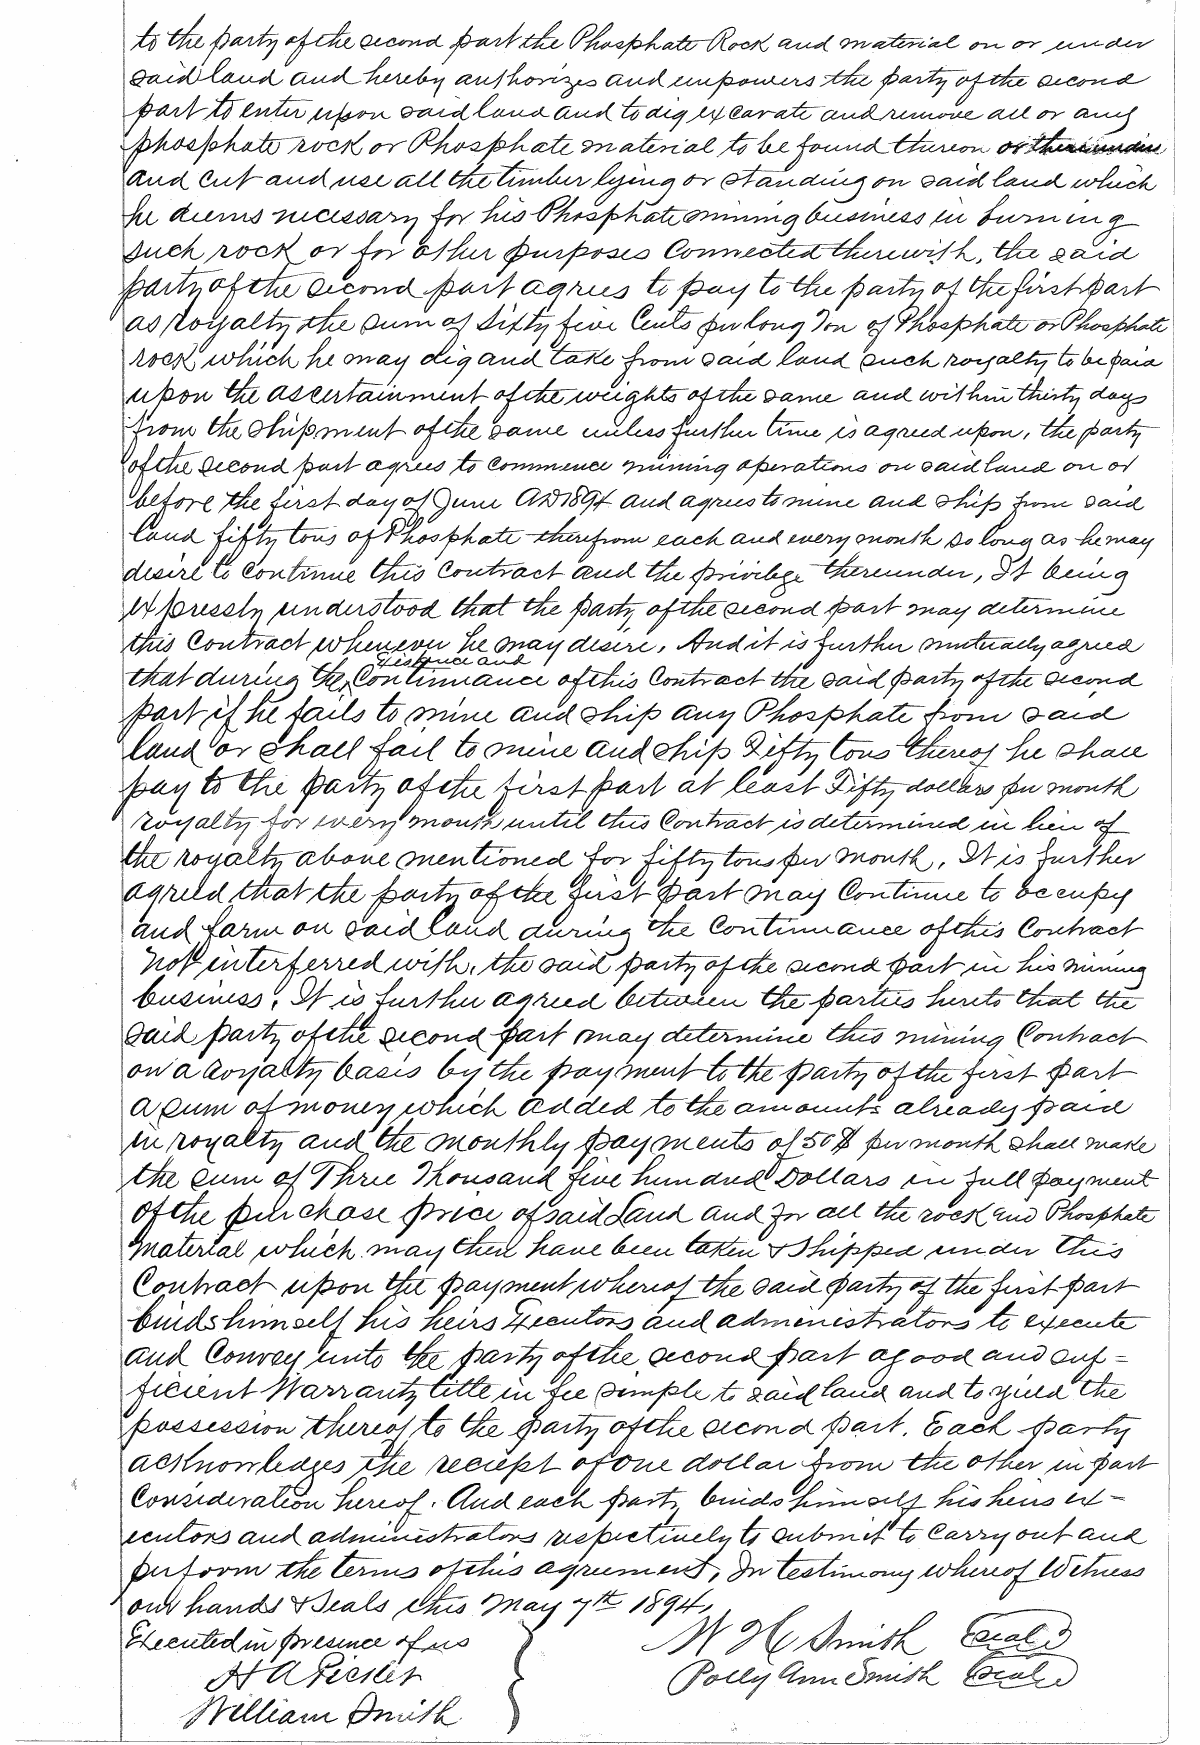 to the party of the second part the Phosphate Rock and material on or under
said land and hereby authorizes and empowers the party of the second
part to enter upon said land and to dig excavate and remove all or any
phosphate rock or Phosphate material to be found thereon or thereunder
and cut and use all the timber lying or standing on said land which
he deems necessary for his Phosphate mining business in burning
such rock or for other purposes Connected therewith, the said
party of the second part agrees to pay to the party of the first part
as royalty the sum of Sixty five Cents per long Ton of Phosphate or Phosphate
rock which he may dig and take from said land such royalty to be paid
upon the ascertainment of the weights of the same and within thirty days
from the shipment of the same unless further time is agreed upon, the party
of the second part agrees to commence mining operations on said land on or
before the first day of June AD 1894 and agrees to mine and ship from said
land fifty tons of Phosphate therefrom each and every month so long as he may
desire to continue this contract and the privilege thereunder, It being
expressly understood that the party of the second part may determine
this Contract whenever he may desire. And it is further mutually agreed
existence and
that during the Continuance of this Contract the said party of the second
part if he fails to mine and ship any Phosphate from said
land or shall fail to mine and ship Fifty tons thereof he shall
pay to the party of the first part at least Fifty dollars per month
royalty for every month until this Contract is determined in lieu of
the royalty above mentioned for fifty tons per month. It is further
agreed that the party of the first part may Continue to occupy
and farm on said land during the Continuance of this Contract
not interferred with, the said party of the second part in his mining
business. It is further agreed between the parties hereto that the
said party of the second part may determine this mining Contract
on a royalty basis by the payment to the party of the first part
a sum of money which added to the amounts already paid
in royalty and the monthly payments of 50$ per month shall make
the sum of Three Thousand five hundred Dollars in full payment
of the purchase price of said Land and for all the rock and Phosphate
material which may then have been taken & Shipped under this
Contract upon the payment whereof the said party of the first part
binds himself his heirs Executors and administrators to execute
and Convey unto the party of the second part a good and suf=
ficient Warranty title in fee simple to said land and to yield the
possession thereof to the party of the second part. Each party
acknowledges the reciept of one dollar from the other in part
Consideration hereof. And each party binds himself his heirs ex-
ecutors and administrators respectively to submit to carry out and
perform the terms of this agreement, In testimony whereof Witness
our hands & Seals this May 7th 1894,
Executed in presence of us
W H Smith Seal
H A
Polly Ann Smith Seal
William Smith